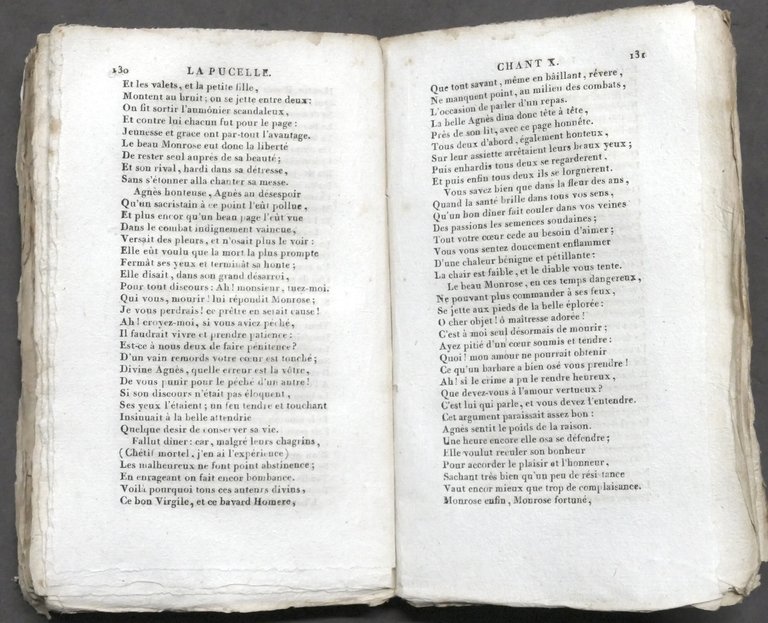 130 LA PUCELLE.
Et les valets, et la petite fille,
Montent au bruit; on se jette entre deux:
On fit sortir l'aumônier scandaleux,
Et contre lui chacun fut pour le page:
Jeunesse et grace ont par-tout l'avantage.
Le beau Monrose eut donc la liberté
De rester seul auprès de sa beauté;
Et son rival, hardi dans sa détresse,
Sans s'étonner alla chanter sa messe.
Agnès honteuse, Agnès au désespoir
Qu'un sacristain à ce point l'eût pollue,
Et plus encor qu'un beau page l'eût vue
Dans le combat indignement vaincue,
Versait des pleurs, et n'osait plus le voir:
Elle eût voulu que la mort la plus prompte
Fermât ses yeux et terminât sa honte;
Elle disait, dans son grand désarroi,
Pour tout discours: Ah! monsieur, tuez-moi.
Qui vous, mourir! lui répondit Monrose;
Je vous perdrais! ce prêtre en serait cause!
Ah! croyez-moi, si vous aviez péché,
Il faudrait vivre et prendre patience:
Est-ce à nous deux de faire pénitence?
D'un vain remords votre cœur est touché;
Divine Agnès, quelle erreur est la vôtre,
De vous punir pour le péché d'un autre!
Si son discours n'était pas éloquent,
Ses yeux l'étaient; un feu tendre et touchant
Insinuait à la belle attendrie
Quelque desir de conserver sa vie.
Fallut dîner: car, malgré leurs chagrins,
(Chétif mortel, j'en ai l'expérience)
Les malheureux ne font point abstinence;
En enrageant on fait encor bombance.
Voilà pourquoi tous ces auteurs divins,
Ce bon Virgile, et ce bavard Homere,
CHANT X. 131
Que tout savant, même en bâillant, révere,
Ne manquent point, au milieu des combats,
L'occasion de parler d'un repas.
La belle Agnès dîna donc tête à tête,
Près de son lit, avec ce page honnête.
Tous deux d'abord, également honteux,
Sur leur assiette arrêtaient leurs beaux yeux;
Puis enhardis tous deux se regarderent,
Et puis enfin tous deux ils se lorgnerent.
Vous savez bien que dans la fleur des ans,
Quand la santé brille dans tous vos sens,
Qu'un bon dîner fait couler dans vos veines
Des passions les semences soudaines;
Tout votre cœur cede au besoin d'aimer;
Vous vous sentez doucement enflammer
D'une chaleur bénigne et pétillante:
La chair est faible, et le diable vous tente.
Le beau Monrose, en ces temps dangereux,
Ne pouvant plus commander à ses feux,
Se jette aux pieds de la belle éplorée:
O cher objet! ô maîtresse adorée!
C'est à moi seul désormais de mourir;
Ayez pitié d'un cœur soumis et tendre:
Quoi! mon amour ne pourrait obtenir
Ce qu'un barbare a bien osé vous prendre!
Ah! si le crime a pu le rendre heureux,
Que devez-vous à l'amour vertueux?
C'est lui qui parle, et vous devez l'entendre.
Cet argument paraissait assez bon:
Agnès sentit le poids de la raison.
Une heure encore elle osa se défendre;
Elle voulut reculer son bonheur
Pour accorder le plaisir et l'honneur,
Sachant très bien qu'un peu de résistance
Vaut encor mieux que trop de complaisance.
Monrose enfin, Monrose fortuné,